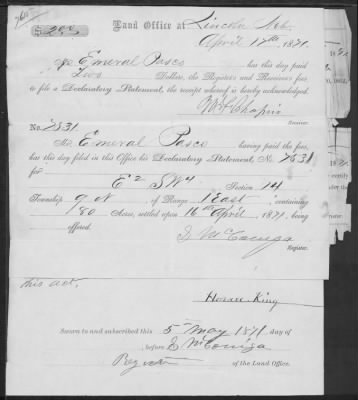 $2.00 Land Office at Lincoln Neb
April 17th 1871.
Emeral Pasco has this day paid
Two Dollars, the Register and Receivers fees
to file a Declaratory Statement, the receipt whereof is hereby acknowledged.
Receiver.
No. 7531 Mr Emeral Pasco having paid the fees,
has this day filed in this Office his Declaratory Statement, No. 7531
for E2 SW4 Section 14
Township 9 N of Range 1 East, containing
80 Acres, settled upon 16th April, 1871, being
offered.
Register.
this act,
Horace King
Sworn to and subscribed this 5th May 1871, day of
, before
Register of the Land Office.